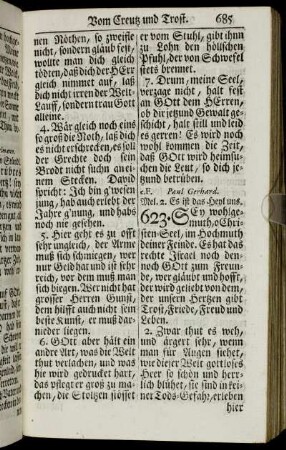 Vom Creutz und Trost. 685
nen Nöthen, so zweifle
nicht, sondern gläub fest,
wollte man dich gleich
tödten, daß dich der HErr
gleich nimmet auf, laß
dich nicht irren der Welt-
Lauff, sondern trau Gott
alleine.
4. Wär gleich noch eins
so groß die Noth, laß dich
es nicht erschrecken, es soll
der Gerechte doch sein
Brodt nicht suchn an ei-
nem Stecken. David
spricht: Ich bin g'wesen
jung, hab auch erlebt der
Jahre g'nung, und habs
noch nie gesehen.
5. Hier geht es zu offt
sehr ungleich, der Arme
muß sich schmiegen, wer
nur Geld hat und ist sehr
reich, vor dem muß man
sich biegen. Wer nicht hat
grosser Herren Gunst,
dem hilfft auch nicht sein
beste Kunst, er muß dar-
nieder liegen.
6. GOtt aber hält ein
andre Art, was die Welt
thut verlachen, und was
hie wird gedrucket hart,
das pflegt er groß zu ma-
chen, die Stoltzen stösset
er vom Stuhl, gibt ihnn
zu Lohn den höllschen
Pfuhl, der von Schwefel
stets brennet.
7. Drum, meine Seel,
verzage nicht, halt fest
an GOtt dem HErren,
ob dir jetzund Gewalt ge-
schicht, halt still und leid
es gerren! Es wird noch
wohl kommen die Zeit,
daß GOtt wird heimsu-
chen die Leut, so dich je-
tzund betrüben.
c.F. Paul Gerhard.
Mel. 2. Es ist das Heyl uns.
623. SEy wohlge-
muth, o Chri-
sten-Seel, im Hochmuth
deiner Feinde. Es hat das
rechte Israel noch den-
noch GOtt zum Freun-
de, wer gläubt und hofft,
der wird geliebt von dem,
der unsern Hertzen gibt
Trost, Friede, Freud und
Leben.
2. Zwar thut es weh,
und ärgert sehr, wenn
man für Augen siehet,
wie dieser Welt gottloses
Heer so schön und herr-
lich blühet, sie sind in kei-
ner Tods-Gefahr, erleben
hier